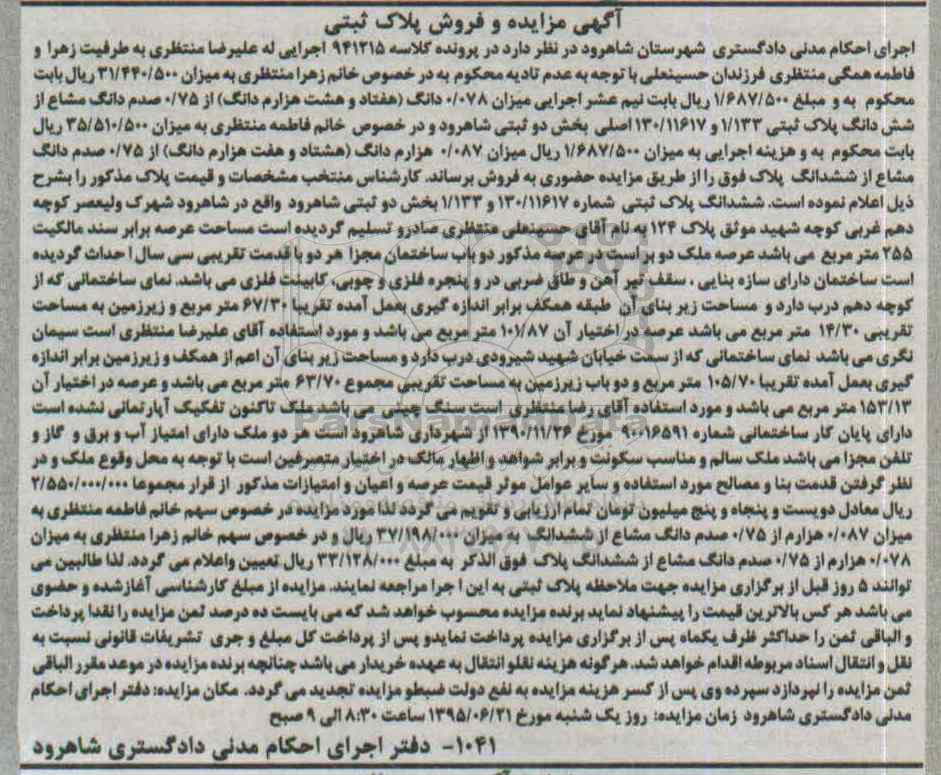 آگهی مزایده و فروش پلاک ثبتی
اجرای احکام مدنی دادگستری شهرستان شاهرود در نظر دارد در پرونده کلاسه ۹۴۱۲۱۵ اجرایی له علیرضا منتظری به طرفیت زهرا و
فاطمه همگی منتظری فرزندان حسینعلی با توجه به عدم تادیه محکوم به در خصوص خانم زهرا منتظری به میزان ۳۱/۴۴۰/۵۰۰ ریال بابت
محکوم به و مبلغ ۱/۶۸۷/۵۰۰ ریال بابت نیم عشر اجرایی میزان ۰/۰۷۸ دانگ (هفتاد و هشت هزارم دانگ) از ۰/۷۵ صدم دانگ مشاع از
شش دانگ پلاک ثبتی ۱/۱۳۳ و ۱۳۰/۱۱۶۱۷ اصلی بخش دو ثبتی شاهرود و در خصوص خانم فاطمه منتظری به میزان ۳۵/۵۱۰/۵۰۰ ریال
بابت محکوم به و هزینه اجرایی به میزان ۱/۶۸۷/۵۰۰ ریال میزان ۰/۰۸۷ هزارم دانگ (هشتاد و هفت هزارم دانگ) از ۰/۷۵ صدم دانگ
مشاع از ششدانگ پلاک فوق را از طریق مزایده حضوری به فروش برساند. کارشناس منتخب مشخصات و قیمت پلاک مذکور را بشرح
ذیل اعلام نموده است. ششدانگ پلاک ثبتی شماره ۱۳۰/۱۱۶۱۷ و ۱/۱۳۳ بخش دو ثبتی شاهرود واقع در شاهرود شهرک ولیعصر کوچه
دهم غربی کوچه شهید موثق پلاک ۱۲۴ به نام آقای حسینعلی منتظری صادرو تسلیم گردیده است مساحت عرصه برابر سند مالکیت
۲۵۵ متر مربع می باشد عرصه ملک دو بر است در عرصه مذکور دو باب ساختمان مجزا هر دو با قدمت تقریبی سی سال احداث گردیده
است ساختمان دارای سازه بنایی ، سقف تیر آهن و طاق ضربی در و پنجره فلزی و چوبی، کابینت فلزی می باشد. نمای ساختمانی که از
کوچه دهم درب دارد و مساحت زیر بنای آن طبقه همکف برابر اندازه گیری بعمل آمده تقریبا ۶۷/۳۰ متر مربع و زیرزمین به مساحت
تقریبی ۱۴/۳۰ متر مربع می باشد عرصه در اختیار آن ۱۰۱/۸۷ متر مربع می باشد و مورد استفاده آقای علیرضا منتظری است سیمان
نگری می باشد نمای ساختمانی که از سمت خیابان شهید شیرودی درب دارد و مساحت زیر بنای آن اعم از همکف و زیرزمین برابر اندازه
گیری بعمل آمده تقریبا ۱۰۵/۷۰ متر مربع و دو باب زیرزمین به مساحت تقریبی مجموع ۶۳/۷۰ متر مربع می باشد و عرصه در اختیار آن
۱۵۳/۱۳ متر مربع می باشد و مورد استفاده آقای رضا منتظری است سنگ چینی می باشد ملک تاکنون تفکیک آپارتمانی نشده است
دارای پایان کار ساختمانی شماره ۹۰۰۱۶۵۹۱ مورخ ۱۳۹۰/۱۱/۲۶ از شهرداری شاهرود است هر دو ملک دارای امتیاز آب و برق و گاز و
تلفن مجزا می باشد ملک سالم و مناسب سکونت و برابر شواهد و اظهار مالک در اختیار متصرفین است با توجه به محل وقوع ملک و در
نظر گرفتن قدمت بنا و مصالح مورد استفاده و سایر عوامل موثر قیمت عرصه و اعیان و امتیازات مذکور از قرار مجموعا ۲/۵۵۰/۰۰۰/۰۰۰
ریال معادل دویست و پنجاه و پنج میلیون تومان تمام ارزیابی و تقویم می گردد لذا مورد مزایده در خصوص سهم خانم فاطمه منتظری به
میزان ۰/۰۸۷ هزارم از ۰/۷۵ صدم دانگ مشاع از ششدانگ به میزان ۳۷/۱۹۸/۰۰۰ ریال و در خصوص سهم خانم زهرا منتظری به میزان
۰/۰۷۸ هزارم از ۰/۷۵ صدم دانگ مشاع از ششدانگ پلاک فوق الذکر به مبلغ ۳۳/۱۲۸/۰۰۰ ریال تعیین واعلام می گردد. لذا طالبین می
توانند ۵ روز قبل از برگزاری مزایده جهت ملاحظه پلاک ثبتی به این اجرا مراجعه نمایند. مزایده از مبلغ کارشناسی آغازشده و حضوی
می باشد هر کس بالاترین قیمت را پیشنهاد نماید برنده مزایده محسوب خواهد شد که می بایست ده درصد ثمن مزایده را نقدا پرداخت
و الباقی ثمن را حداکثر ظرف یکماه پس از برگزاری مزایده پرداخت نمایدو پس از پرداخت کل مبلغ و جری تشریفات قانونی نسبت به
نقل و انتقال اسناد مربوطه اقدام خواهد شد. هرگونه هزینه نقلو انتقال به عهده خریدار می باشد چنانچه برنده مزایده در موعد مقرر الباقی
ثمن مزایده را نپردازد سپرده وی پس از کسر هزینه مزایده به نفع دولت ضبطو مزایده تجدید می گردد. مکان مزایده: دفتر اجرای احکام
مدنی دادگستری شاهرود زمان مزایده: روز یک شنبه مورخ ۱۳۹۵/۰۶/۲۱ ساعت ۸:۳۰ الی ۹ صبح
۱۰۴۱- دفتر اجرای احکام مدنی دادگستری شاهرود